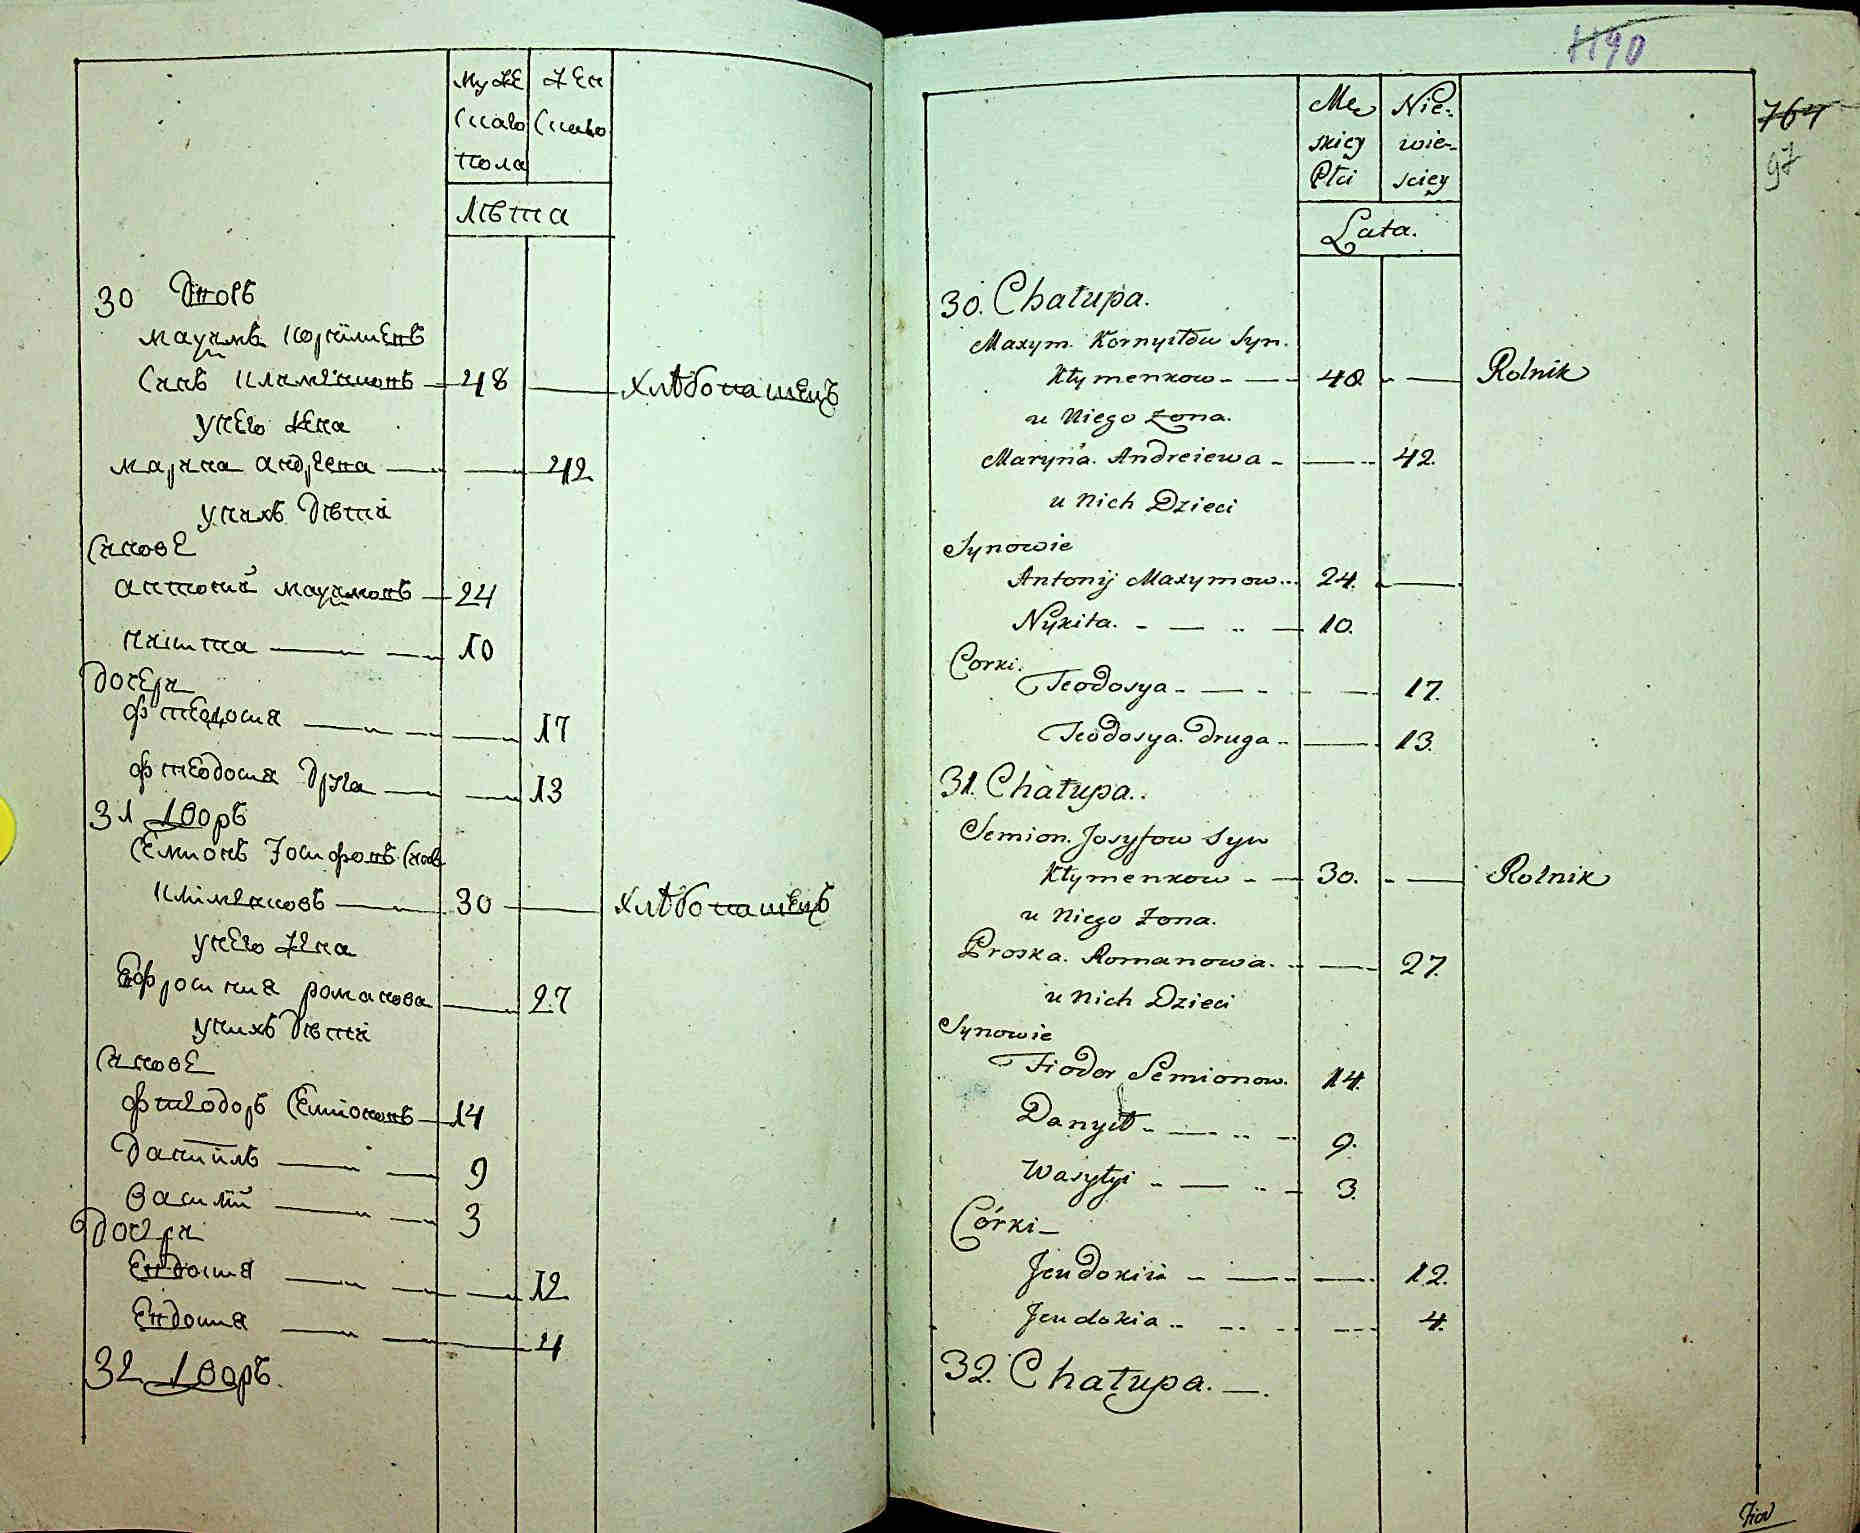 муже
скаго
пола
жен
скаго
Лѣта
30 Дворъ
маѯимъ корнилиевъ
синъ климѣнковъ 48 хлѣбопашецъ
унего жена
марина андреева 42
унихъ дѣти
синове
антоний маѯимовъ 24
никита 10
дочери
фтеодосия 17
фтеодосия друга 13
31 дворъ
Семионъ Іосифовъ синъ
климѣнковъ 30 хлѣбопашецъ
унего жена
Ефросиния романова 27
унихъ дѣти
синове
фтеодоръ Семионовъ 14
Даниилъ 9
Василий 3
Дочери
Евдокия 12
Евдокия 4
32 дворъ.
1190
Mę
skiey
Płci
Nie-
wie-
sciey
Lata.
764
97
30. Chałupa.
Maxym. Kornyłow Syn.
Kłymenkow 48 Rolnik
u Niego żona.
Maryna. Andreiewa 42.
u Nich Dzieci
Synowie
Antonij Maxymow 24.
Nykita. 10.
Corki.
Teodosya 17.
Teodosya. Druga 13.
31. Chałupa.
Semion. Josyfow Syn
Kłymenkow 30. Rolnik
u Niego żona.
Proska. Romanowa. 27.
u Nich Dzieci
Synowie
Fiodor Semionow. 14.
Danyił 9.
Wasyłyi 3.
Córki
Jeudokiia 12.
Jeudokia 4.
32. Chałupa.